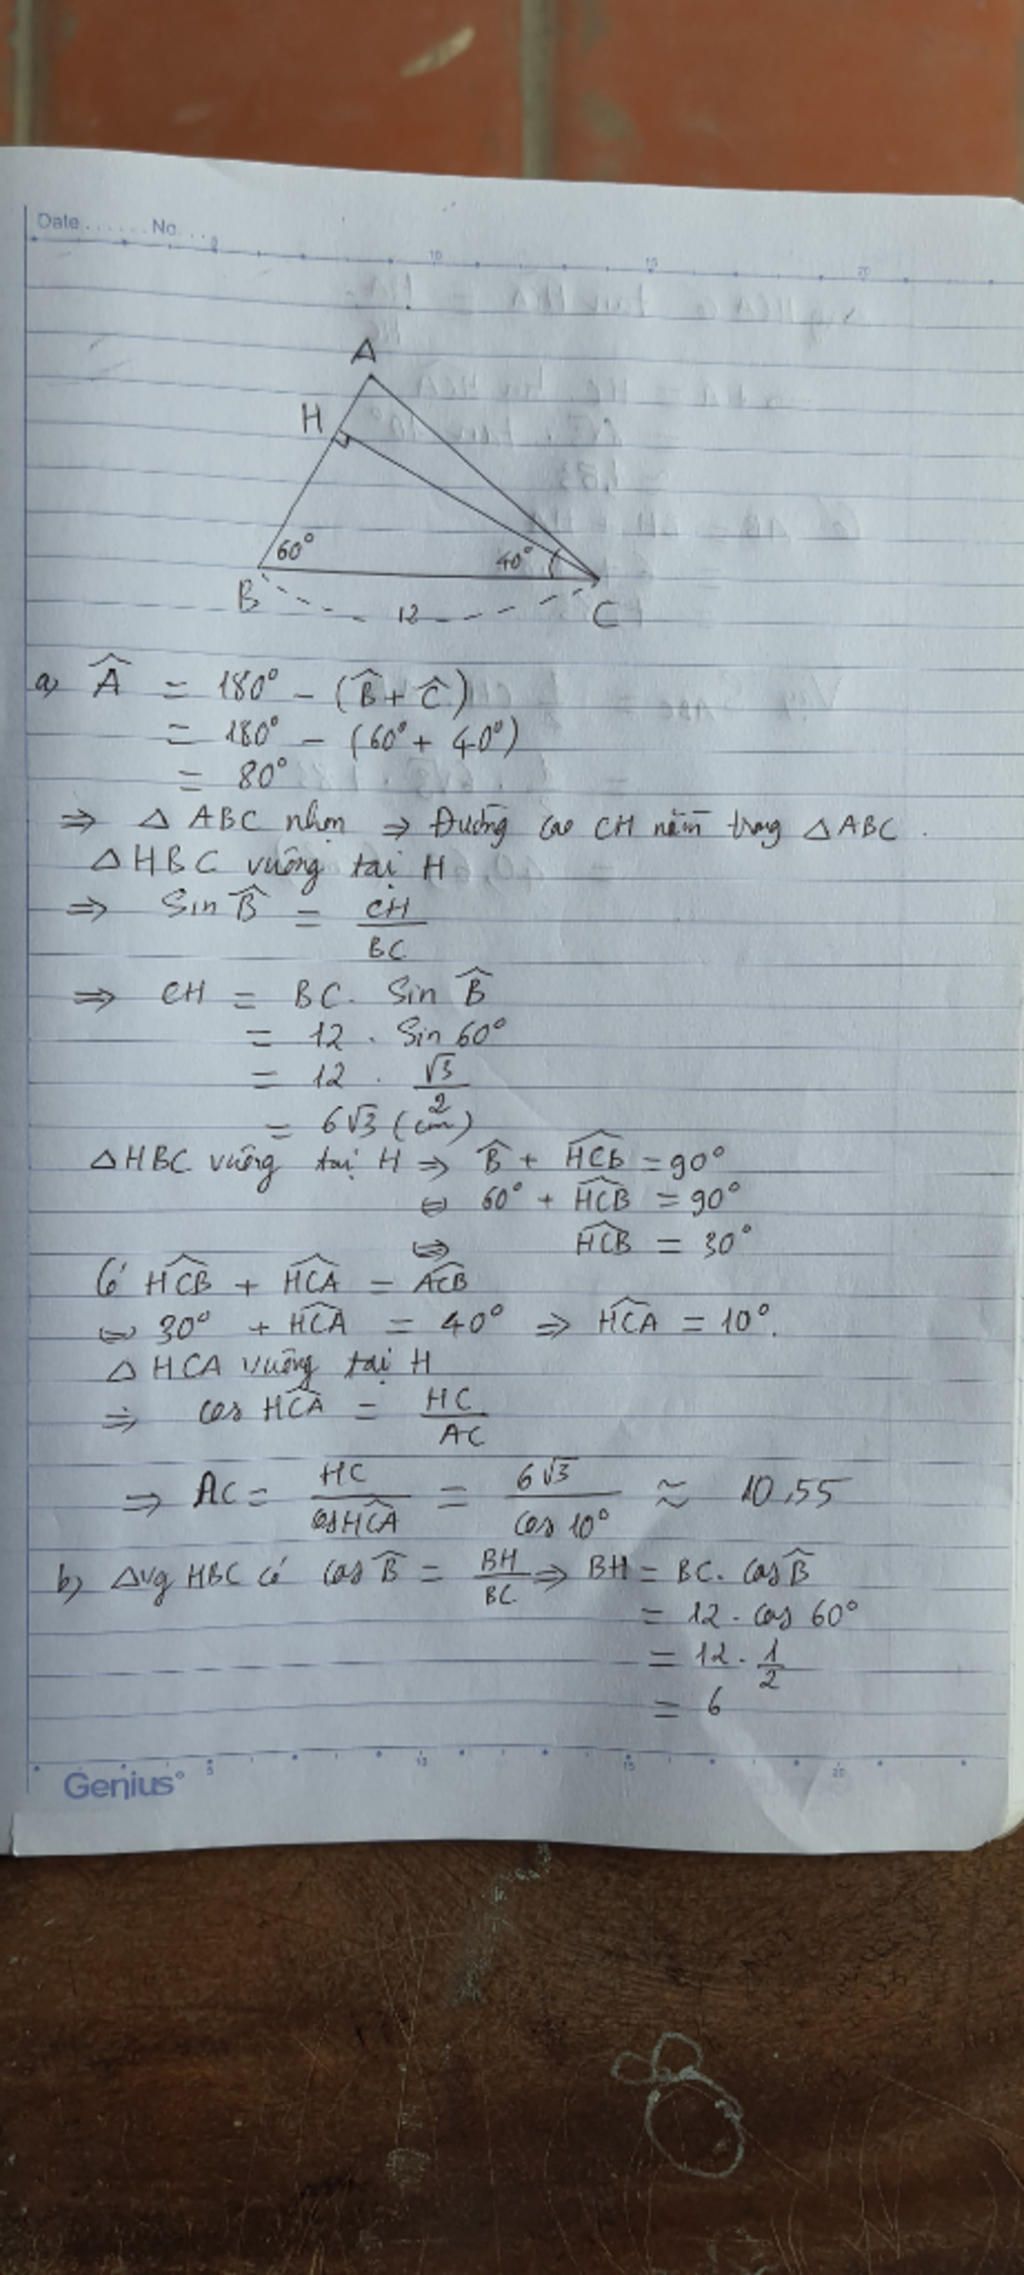 Date ....... No ....
5 10 15 20
A
H
60°
40°
B
12
C
a) Â = 180° - (B̂ + Ĉ)
= 180° - (60° + 40°)
= 80°
⇒ △ ABC nhọn ⇒ Đường cao CH nằm trong △ABC.
△HBC vuông tại H
⇒ Sin B̂ = CH/BC
⇒ CH = BC. Sin B̂
= 12 . Sin 60°
= 12 . √3/2
= 6√3 (cm)
△HBC vuông tại H ⇒ B̂ + HCB̂ = 90°
⇔ 60° + HCB̂ = 90°
⇔ HCB̂ = 30°
Có HCB̂ + HCÂ = ACB̂
⇔ 30° + HCÂ = 40° ⇒ HCÂ = 10°.
△ HCA vuông tại H
⇒ cos HCÂ = HC/AC
⇒ AC = HC/cosHCÂ = 6√3/cos 10° ≈ 10,55
b) △vg HBC có cos B̂ = BH/BC ⇒ BH = BC. cos B̂
= 12 . cos 60°
= 12 . 1/2
= 6
5 10 15 20
Genius